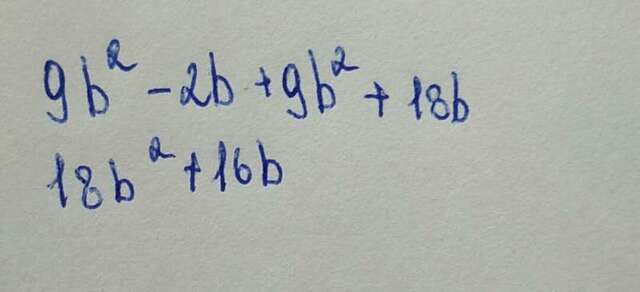 9b² - 2b + 9b² + 18b
18b² + 16b